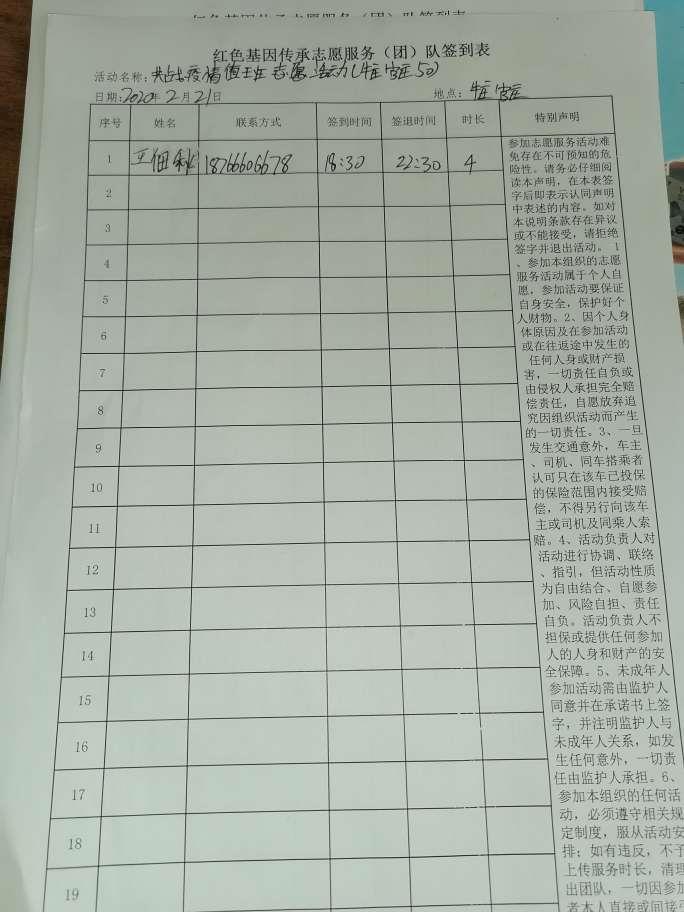 红色基因传承志愿服务（团）队签到表
活动名称：共战疫情值班志愿活动(牡宦庄50)
日期:2020年2月21日
地点：牡宦庄
序号 姓名 联系方式 签到时间 签退时间 时长 特别声明
1 王佃 18766606678 18:30 22:30 4
2
3
4
5
6
7
8
9
10
11
12
13
14
15
16
17
18
19
参加志愿服务活动难
免存在不可预知的危
险性。请务必仔细阅
读本声明，在本表签
字后即表示认同声明
中表述的内容。如对
本说明条款存在异议
或不能接受，请拒绝
签字并退出活动。 1
、参加本组织的志愿
服务活动属于个人自
愿，参加活动要保证
自身安全，保护好个
人财物。2、因个人身
体原因及在参加活动
或在往返途中发生的
任何人身或财产损
害，一切责任自负或
由侵权人承担完全赔
偿责任，自愿放弃追
究因组织活动而产生
的一切责任。3、一旦
发生交通意外，车主
、司机、同车搭乘者
认可只在该车已投保
的保险范围内接受赔
偿，不得另行向该车
主或司机及同乘人索
赔。4、活动负责人对
活动进行协调、联络
、指引，但活动性质
为自由结合、自愿参
加、风险自担、责任
自负。活动负责人不
担保或提供任何参加
人的人身和财产的安
全保障。5、未成年人
参加活动需由监护人
同意并在承诺书上签
字，并注明监护人与
未成年人关系，如发
生任何意外，一切责
任由监护人承担。6、
参加本组织的任何活
动，必须遵守相关规
定制度，服从活动安
排；如有违反，不予
上传服务时长，清理
出团队，一切因参加
者本人直接或间接引